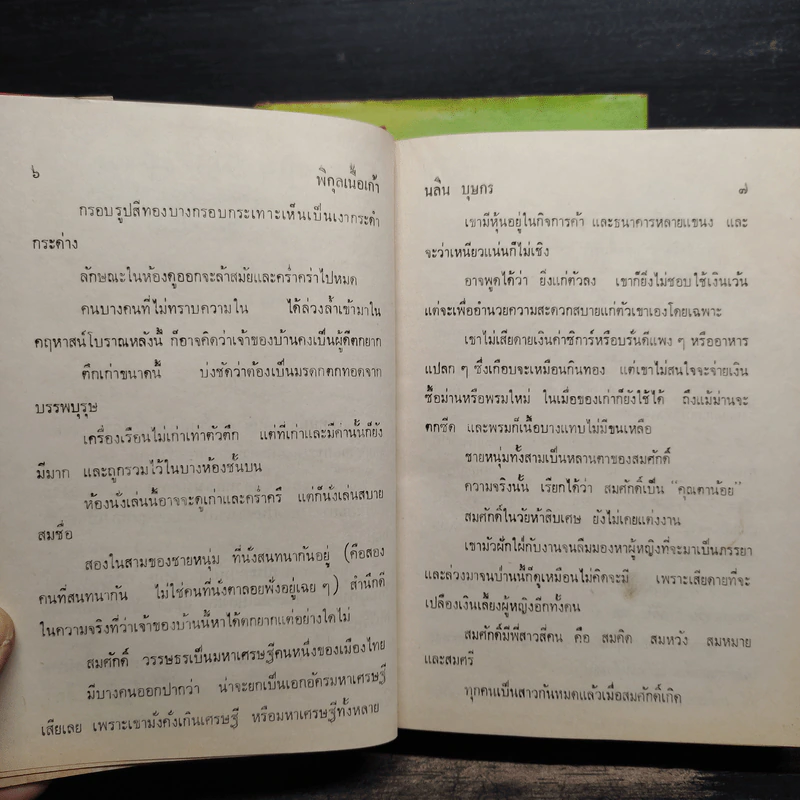 ๖
พิกุลเนื้อเก้า
กรอบรูปสีทองบางกรอบกระเทาะเห็นเป็นเงากระดำ
กระด่าง
ลักษณะในห้องดูออกจะล้าสมัยและคร่ำคร่าไปหมด
คนบางคนที่ไม่ทราบความใน ได้ล่วงล้ำเข้ามาใน
คฤหาสน์โบราณหลังนี้ ก็อาจคิดว่าเจ้าของบ้านคงเป็นผู้ดีตกยาก
ตึกเก่าขนาดนี้ บ่งชัดว่าต้องเป็นมรดกตกทอดจาก
บรรพบุรุษ
เครื่องเรือนไม่เก่าเท่าตัวตึก แต่ที่เก่าและมีค่านั้นก็ยัง
มีมาก และถูกรวมไว้ในบางห้องชั้นบน
ห้องนั่งเล่นนี้อาจจะดูเก่าและคร่ำครึ แต่ก็นั่งเล่นสบาย
สมชื่อ
สองในสามของชายหนุ่ม ที่นั่งสนทนากันอยู่ (คือสอง
คนที่สนทนากัน ไม่ใช่คนที่นั่งตาลอยฟังอยู่เฉย ๆ) สำนึกดี
ในความจริงที่ว่าเจ้าของบ้านนี้หาได้ตกยากแต่อย่างใดไม่
สมศักดิ์ วรรษธรเป็นมหาเศรษฐีคนหนึ่งของเมืองไทย
มีบางคนออกปากว่า น่าจะยกเป็นเอกอัครมหาเศรษฐี
เสียเลย เพราะเขามั่งคั่งเกินเศรษฐี หรือมหาเศรษฐีทั้งหลาย
นลิน บุษกร
๗
เขามีหุ้นอยู่ในกิจการค้า และธนาคารหลายแขนง และ
จะว่าเหนียวแน่นก็ไม่เชิง
อาจพูดได้ว่า ยิ่งแก่ตัวลง เขาก็ยิ่งไม่ชอบใช้เงินเว้น
แต่จะเพื่ออำนวยความสะดวกสบายแก่ตัวเขาเองโดยเฉพาะ
เขาไม่เสียดายเงินค่าซิการ์หรือบรั่นดีแพง ๆ หรืออาหาร
แปลก ๆ ซึ่งเกือบจะเหมือนกินทอง แต่เขาไม่สนใจจะจ่ายเงิน
ซื้อม่านหรือพรมใหม่ ในเมื่อของเก่าก็ยังใช้ได้ ถึงแม้ม่านจะ
ตกซีด และพรมก็เนื้อบางแทบไม่มีขนเหลือ
ชายหนุ่มทั้งสามเป็นหลานตาของสมศักดิ์
ความจริงนั้น เรียกได้ว่า สมศักดิ์เป็น "คุณตาน้อย"
สมศักดิ์ในวัยห้าสิบเศษ ยังไม่เคยแต่งงาน
เขามัวฝักใฝ่กับงานจนลืมมองหาผู้หญิงที่จะมาเป็นภรรยา
และล่วงมาจนป่านนี้ก็ดูเหมือนไม่คิดจะมี เพราะเสียดายที่จะ
เปลืองเงินเลี้ยงผู้หญิงอีกทั้งคน
สมศักดิ์มีพี่สาวสี่คน คือ สมคิด สมหวัง สมหมาย
และสมศรี
ทุกคนเป็นสาวกันหมดแล้วเมื่อสมศักดิ์เกิด